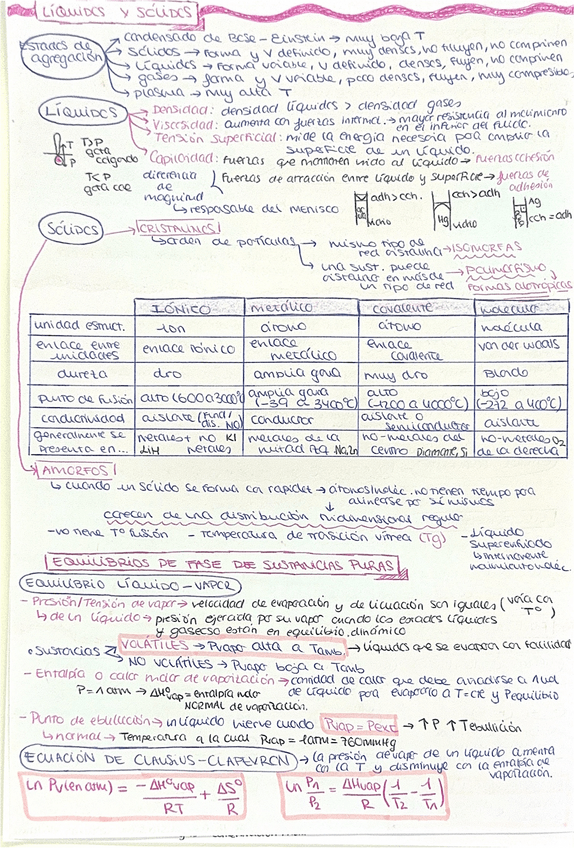 LÍQUIDOS Y SÓLIDOS
Estados de agregación
condensado de Bose-Einstein → muy baja T
sólidos → forma y V definido, muy densos, no fluyen, no comprimen
Líquidos → forma variable, V definido, densos, fluyen, no comprimen
gases → forma y V variable, poco densos, fluyen, muy compresibles
plasma → muy alta T
LÍQUIDOS
Densidad: densidad líquidos > densidad gases
Viscosidad: aumenta con fuerzas intermol. → mayor resistencia al movimiento
en el interior del fluido.
Tensión superficial: mide la energía necesaria para cambiar la
superficie de un líquido.
T T>P
P gota colgando
T<P
gota cae
Capilaridad: fuerzas que mantienen unido al líquido → fuerzas cohesión
diferencia de magnitud
fuerzas de atracción entre líquido y superficie → fuerzas de
adhesión
↳ responsable del menisco
adh > coh.
vidrio
coh > adh
Hg
vidrio
Ag
coh = adh
SÓLIDOS
CRISTALINOS
↳ orden de partículas → mismo tipo de
red cristalina → ISOMORFAS
→ una sust. puede
cristalizar en más de
un tipo de red → POLIMORFISMO
formas alotrópicas
IÓNICO metálico covalente molecular
unidad estruct. ion átomo átomo molécula
enlace entre unidades enlace iónico enlace metálico enlace covalente van der waals
dureza duro amplia gama muy duro Blando
punto de fusión alto (600 a 3000°C) amplia gama (-39 a 3400°C) alto (1200 a 4000°C) bajo (-272 a 400°C)
conductividad aislante (fund/dis. NO) conductor aislante o semiconductor aislante
generalmente se presenta en... metales + no metales KI LiH metales de la mitad Na, Zn no-metales del centro Diamante, Si no-metales O2 de la derecha
AMORFOS
↳ cuando un sólido se forma con rapidez → átomos/moléc. no tienen tiempo para
alinearse por sí mismos
carecen de una distribución tridimensional regular
- no tiene T° fusión - temperatura de transición vítrea (Tg) - Líquido
superenfriado
EQUILIBRIOS DE FASE DE SUSTANCIAS PURAS
EQUILIBRIO LÍQUIDO-VAPOR
- Presión/Tensión de vapor → velocidad de evaporación y de licuación son iguales (varía con
T°)
↳ de un líquido → presión ejercida por su vapor cuando los estados líquidos
y gaseoso están en equilibrio dinámico
• Sustancias VOLÁTILES → Pvapor alta a Tamb → líquidos que se evaporan con facilidad
NO VOLÁTILES → Pvapor baja a Tamb
- Entalpía o calor molar de vaporización → cantidad de calor que debe añadirse a 1 mol
de líquido para evaporarlo a T=cte y Pequilibrio
P = 1 atm → ΔH°vap = entalpía molar
NORMAL de vaporización.
- Punto de ebullición → un líquido hierve cuando Pvap = Pext → ↑P ↑Tebullición
↳ normal → Temperatura a la cual Pvap = 1 atm = 760 mmHg
ECUACIÓN DE CLAUSIUS-CLAPEYRON → la presión de vapor de un líquido aumenta
con la T y disminuye con la entalpía de
vaporización.
ln Pv(en atm) = -ΔH°vap/RT + ΔS°/R
ln P1/P2 = ΔHvap/R (1/T2 - 1/T1)